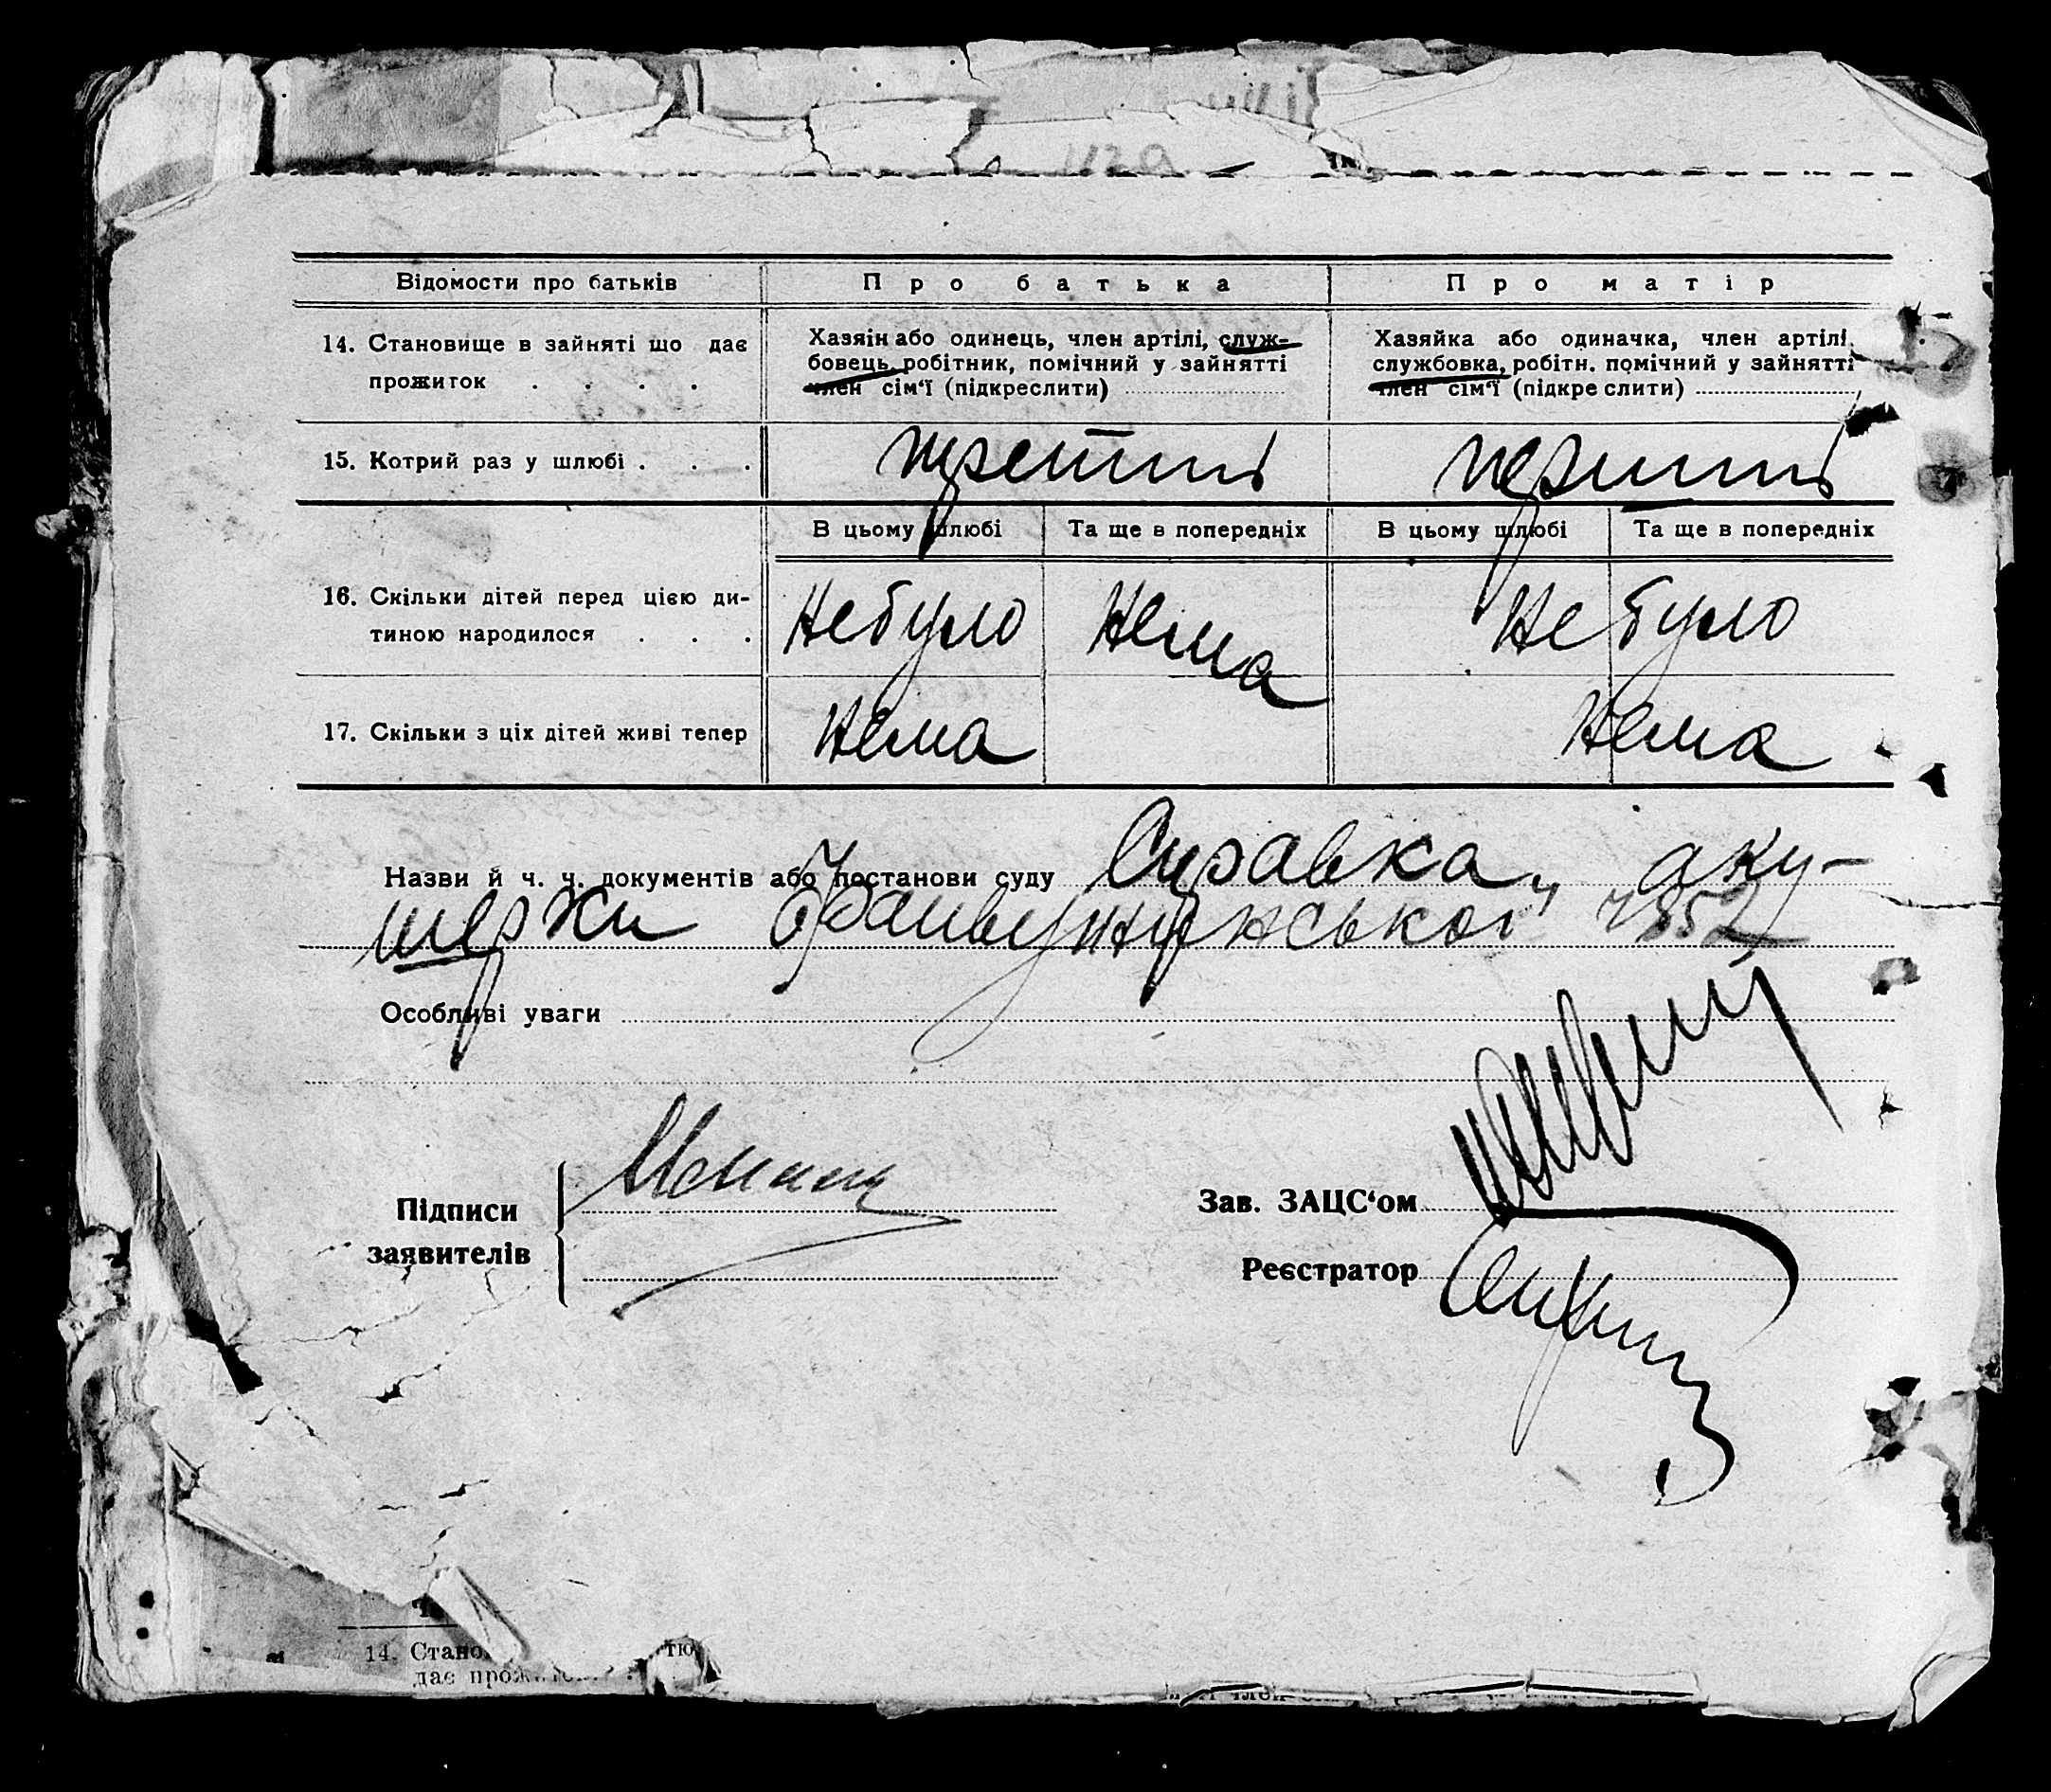 Відомости про батьків
Про батька
Про матір
14. Становище в зайняті що дає
прожиток . . . .
Хазяїн або одинець, член артілі, служ-
бовець, робітник, помічний у зайнятті
член сім'ї (підкреслити)
Хазяйка або одиначка, член артілі,
службовка, робітн. помічний у зайнятті
член сім'ї (підкреслити)
15. Котрий раз у шлюбі . . .
третий
перший
В цьому шлюбі
Та ще в попередніх
В цьому шлюбі
Та ще в попередніх
16. Скільки дітей перед цією ди-
тиною народилося . . .
Небуло
Нема
Не було
17. Скільки з ціх дітей живі тепер
Нема
Нема
Назви й ч. ч. документів або постанови суду Справка „аку-
шерки
Особливі уваги
Підписи
заявителів
Зав. ЗАЦС'ом
Реєстратор
14. Стано
дає прож